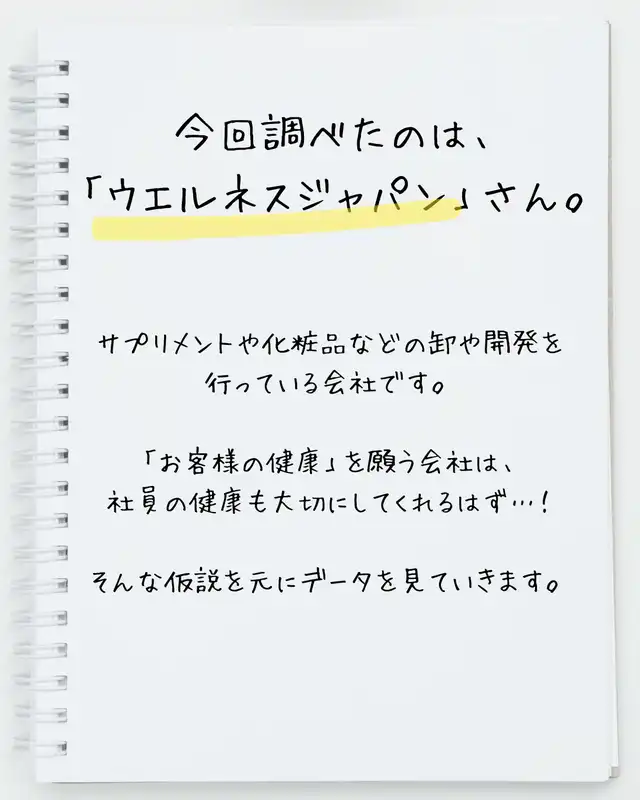 今回調べたのは、
「ウエルネスジャパン」さん。
サプリメントや化粧品などの卸や開発を
行っている会社です。
「お客様の健康」を願う会社は、
社員の健康も大切にしてくれるはず…！
そんな仮説を元にデータを見ていきます。